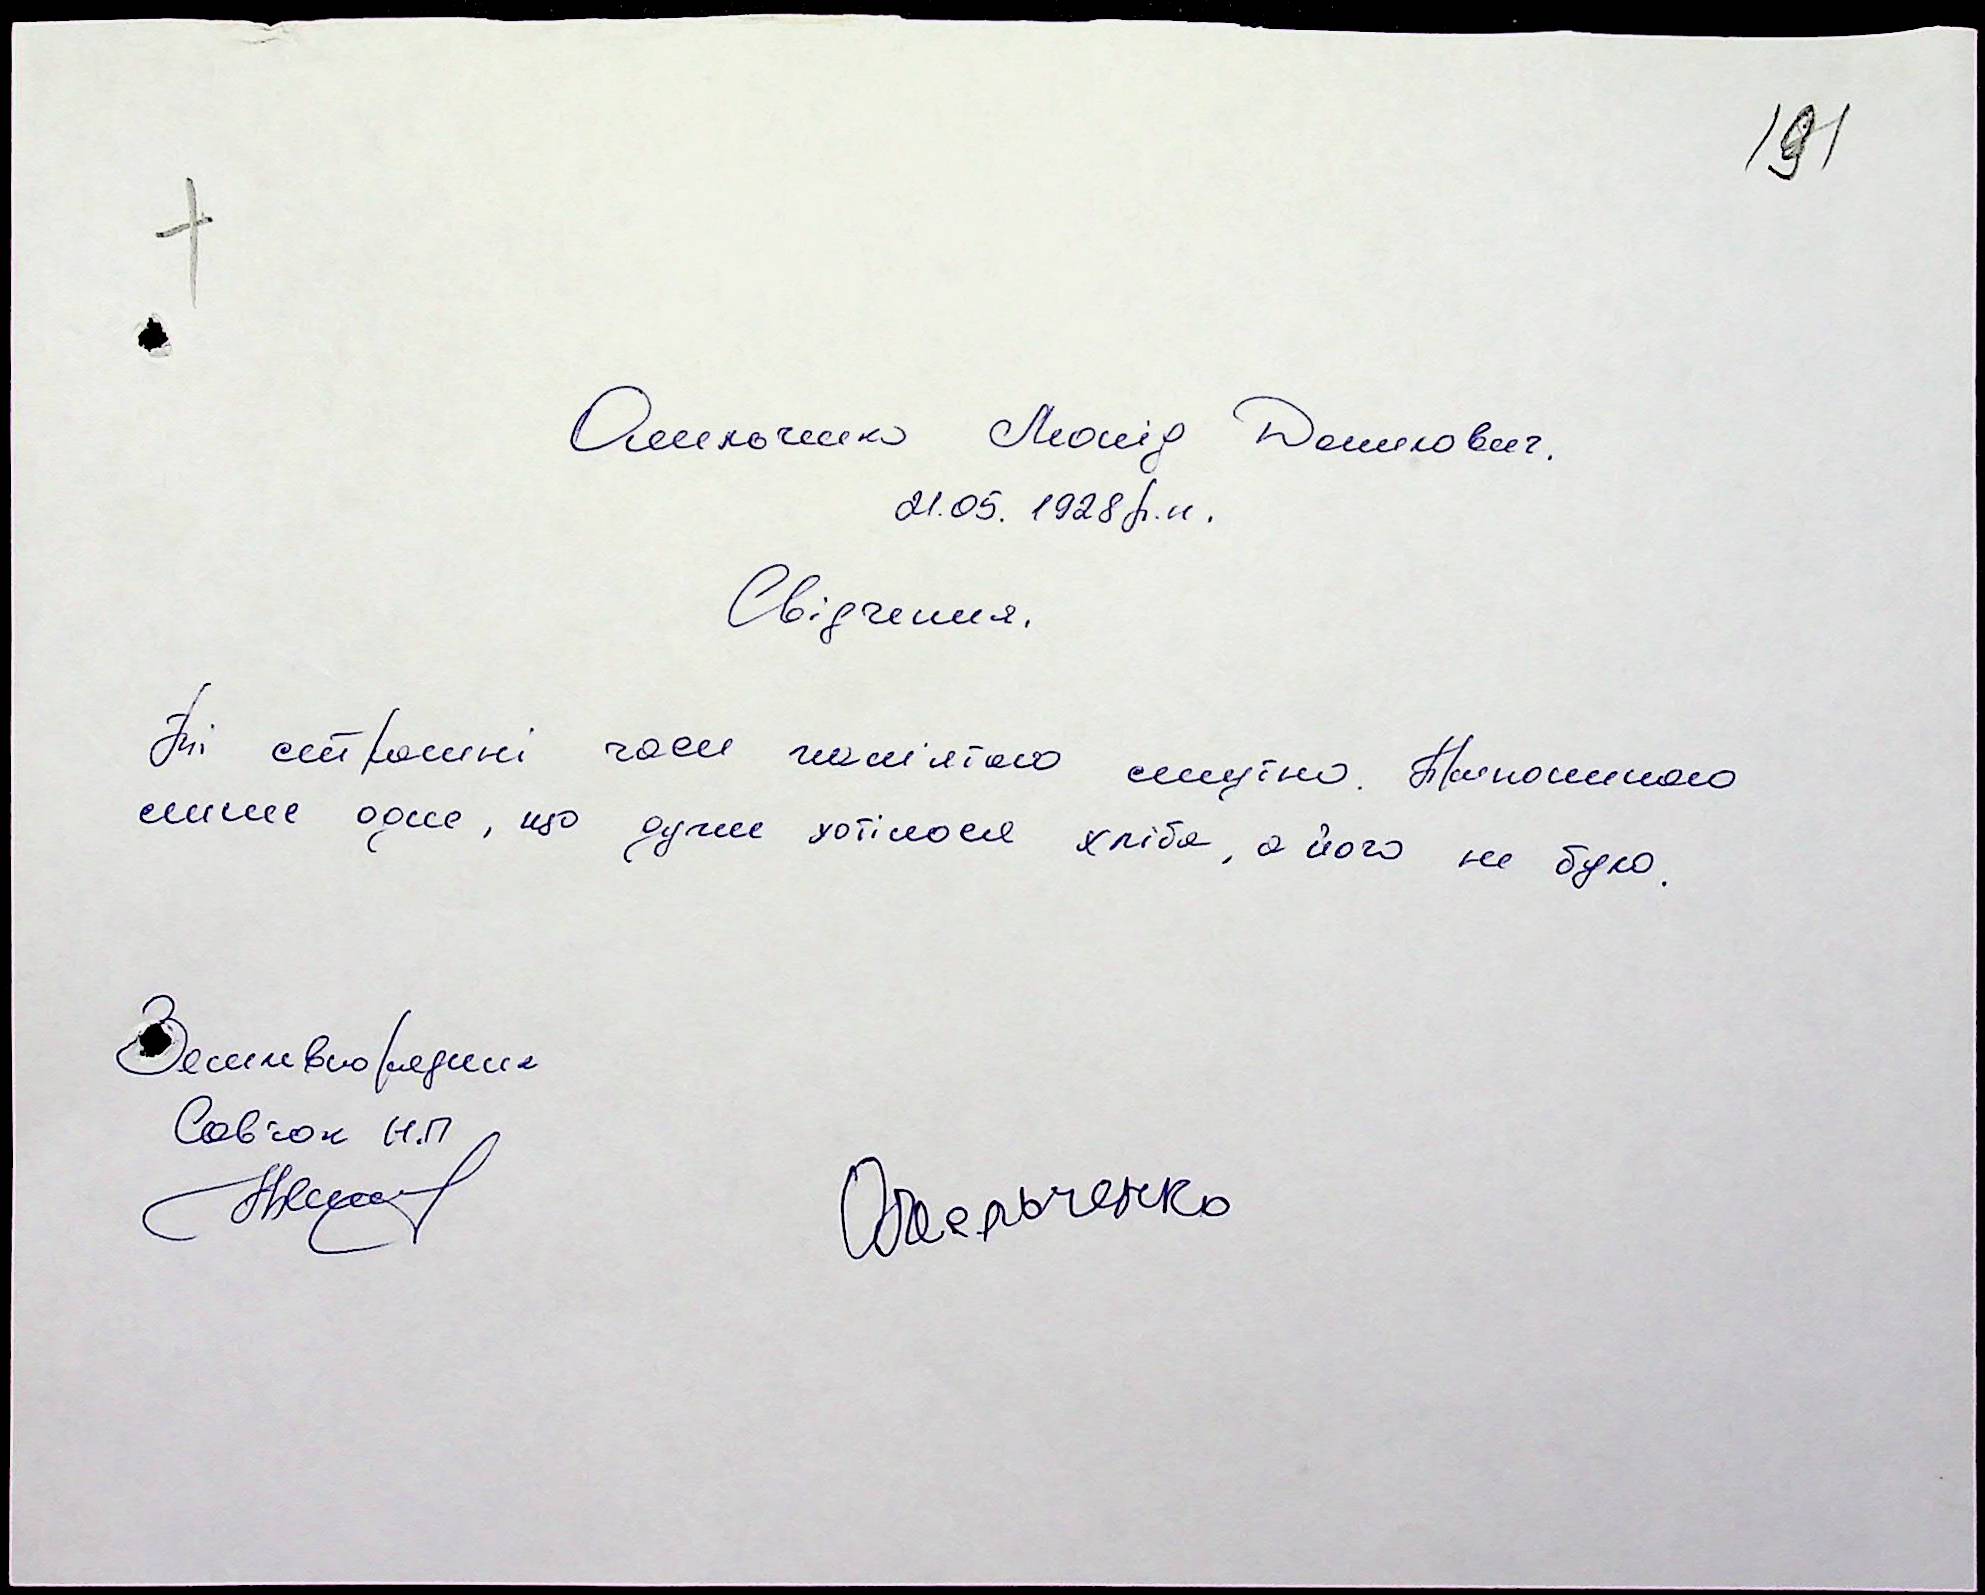 191
Омельченко Леонід Данилович.
21.05.1928 р.н.
Свідчення.
Ті страшні часи пам'ятаю смутно. Пригадую
лише одне, що дуже хотілося хліба, а його не було.
Землевпорядник
Савчок Н.П
Омельченко